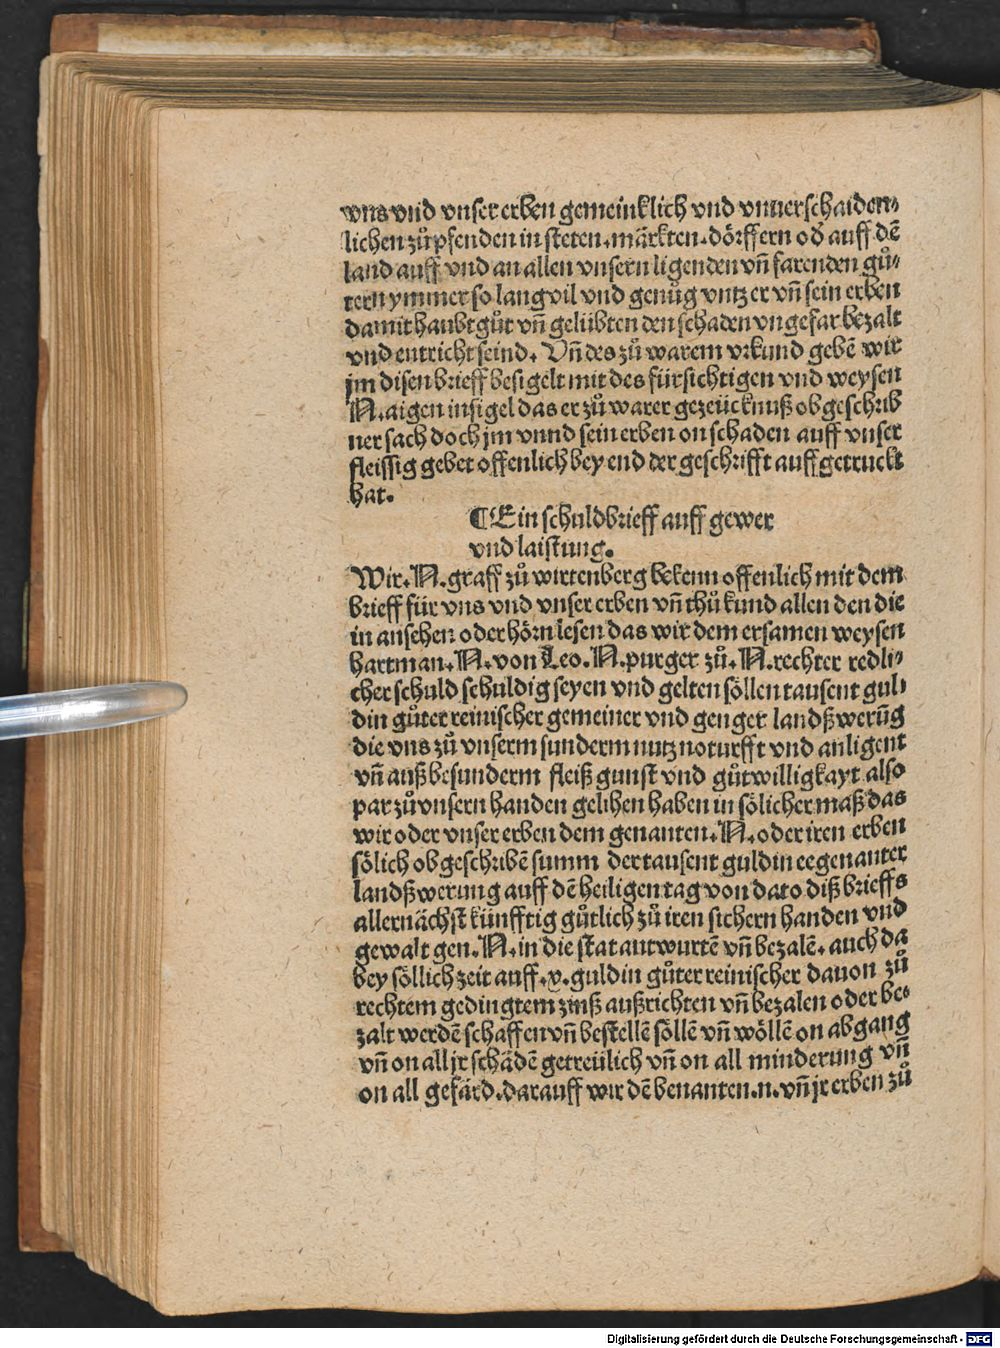 vns vnd vnser erben gemeinklich vnd vnuerschaiden⸗
lichen zůpfenden in steten. märkten. dörffern od̕ auff dē
land auff vnd an allen vnsern ligenden vn̄ farenden gů⸗
tern ymmer so lang vil vnd genůg vntz er vn̄ sein erben
damit haubtgůt vn̄ gelübten den schaden vngefar bezalt
vnd entricht seind. Vn̄ des zů warem vrkund gebē wir
jm disen brieff besigelt mit des fürsichtigen vnd weysen
N. aigen insigel das er zů warer gezeücknuß obgeschrib
ner sach doch jm vnnd sein erben on schaden auff vnser
fleissig gebet offenlich bey end der geschrifft auffgetruckt
hat.
¶ Ein schuldbrieff auff gewer
vnd laistung.
Wir. N. graff zů wirtenberg bekenn offenlich mit dem
brieff für vns vnd vnser erben vn̄ thů kund allen den die
in ansehen oder hörn lesen das wir dem ersamen weysen
hartman. N. von Leo. N. purger zů. N. rechter redli⸗
cher schuld schuldig seyen vnd gelten söllen tausent gul⸗
din gůter reinischer gemeiner vnd genger landßwerūg
die vns zů vnserm sunderm nutz noturfft vnd anligent
vn̄ auß besunderm fleiß gunst vnd gůtwilligkayt also
par zů vnsern handen gelihen haben in sölicher maß das
wir oder vnser erben dem genanten. N. oder iren erben
sölich obgeschribē summ der tausent guldin eegenanter
landßwerung auff dē heiligen tag von dato diß brieffs
allernächst künfftig gůtlich zů iren sichern handen vnd
gewalt gen. N. in die stat antwurtē vn̄ bezalē. auch da
bey söllich zeit auff. v. guldin gůter reinischer dauon zů
rechtem gedingtem zinß außrichten vn̄ bezalen oder be⸗
zalt werdē schaffen vn̄ bestellē söllē vn̄ wöllē on abgang
vn̄ on all jr schädē getreülich vn̄ on all minderung vn̄
on all gefärd. darauff wir dē benanten. n. vn̄ jr erben zů
Digitalisierung gefördert durch die Deutsche Forschungsgemeinschaft - DFG